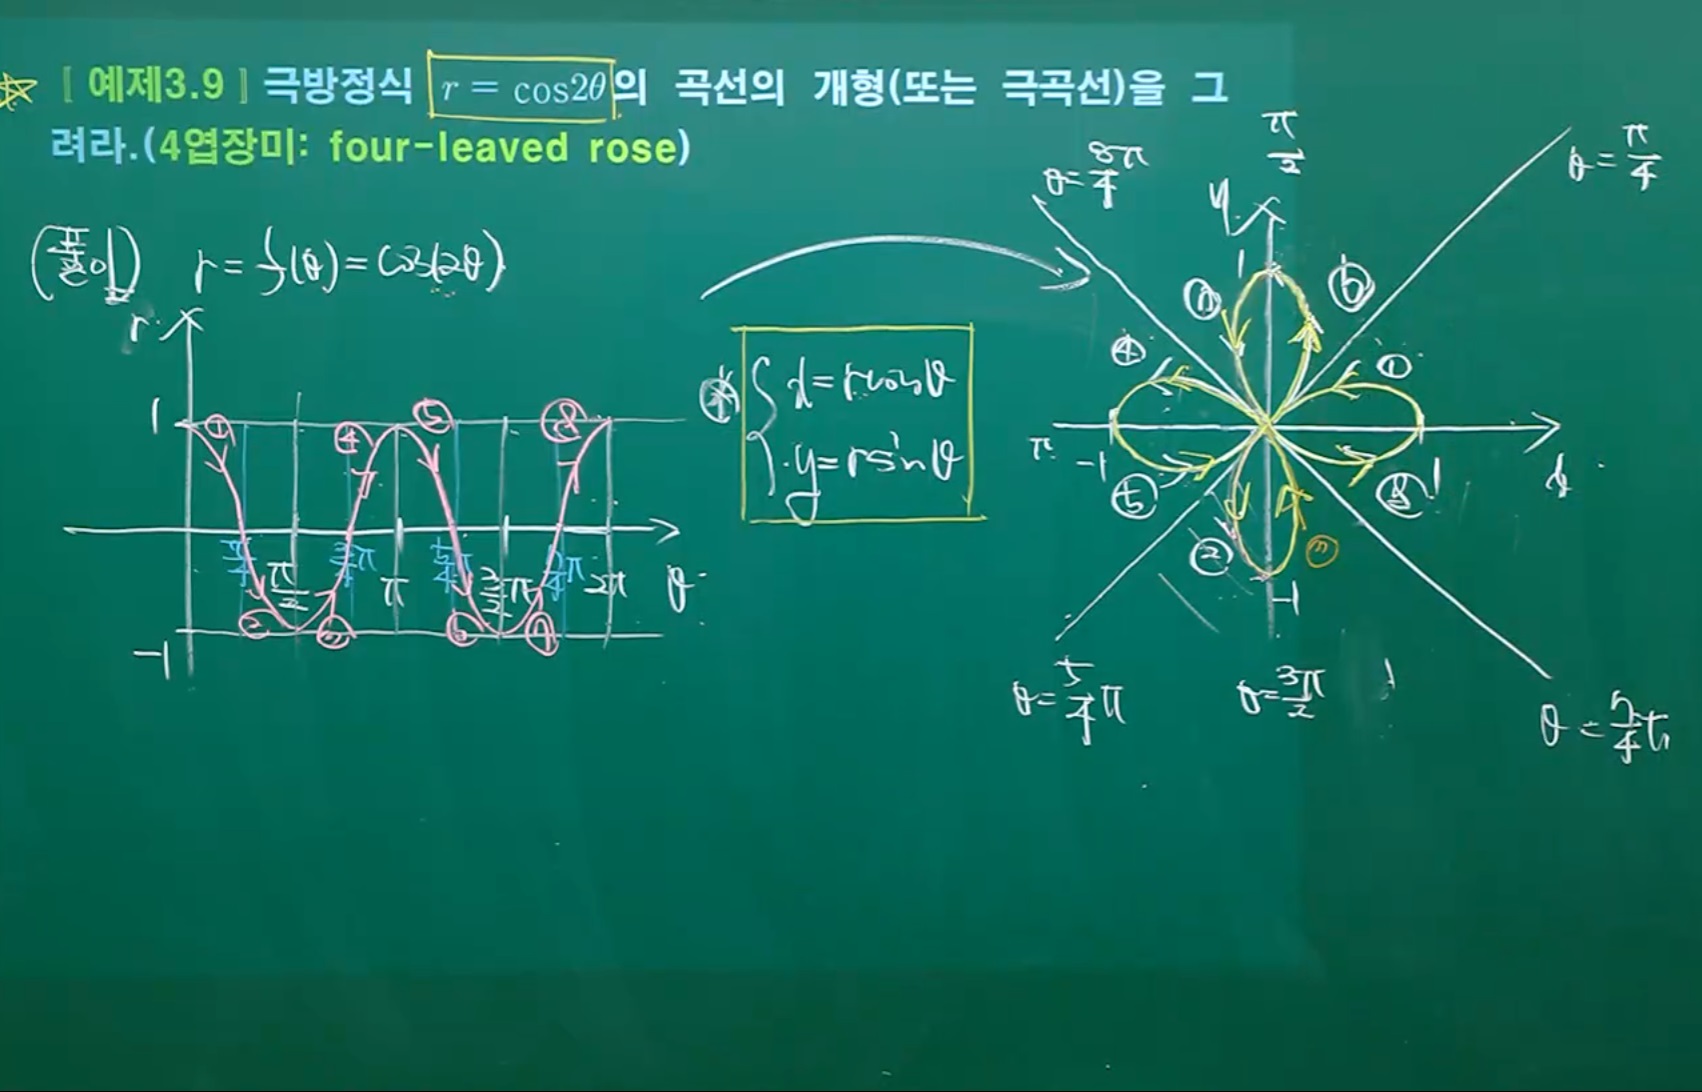 [ 예제3.9 ] 극방정식 r = cos2θ의 곡선의 개형(또는 극곡선)을 그
려라.(4엽장미: four-leaved rose)
(풀이) r = f(θ) = cos(2θ)
r
1
① ④ ⑤ ⑧
π/4 π/2 3/4 π π 5/4 π 3/2 π 7/4 π 2π θ
② ③ ⑥ ⑦
-1
※ { x = r cosθ
y = r sinθ
θ = 3π/4 π/2 θ = π/4
y
1
⑦ ⑥
④ ①
π -1 1 x
⑤ ⑧
② ③
-1
θ = 5/4 π θ = 3π/2 θ = 7/4 π